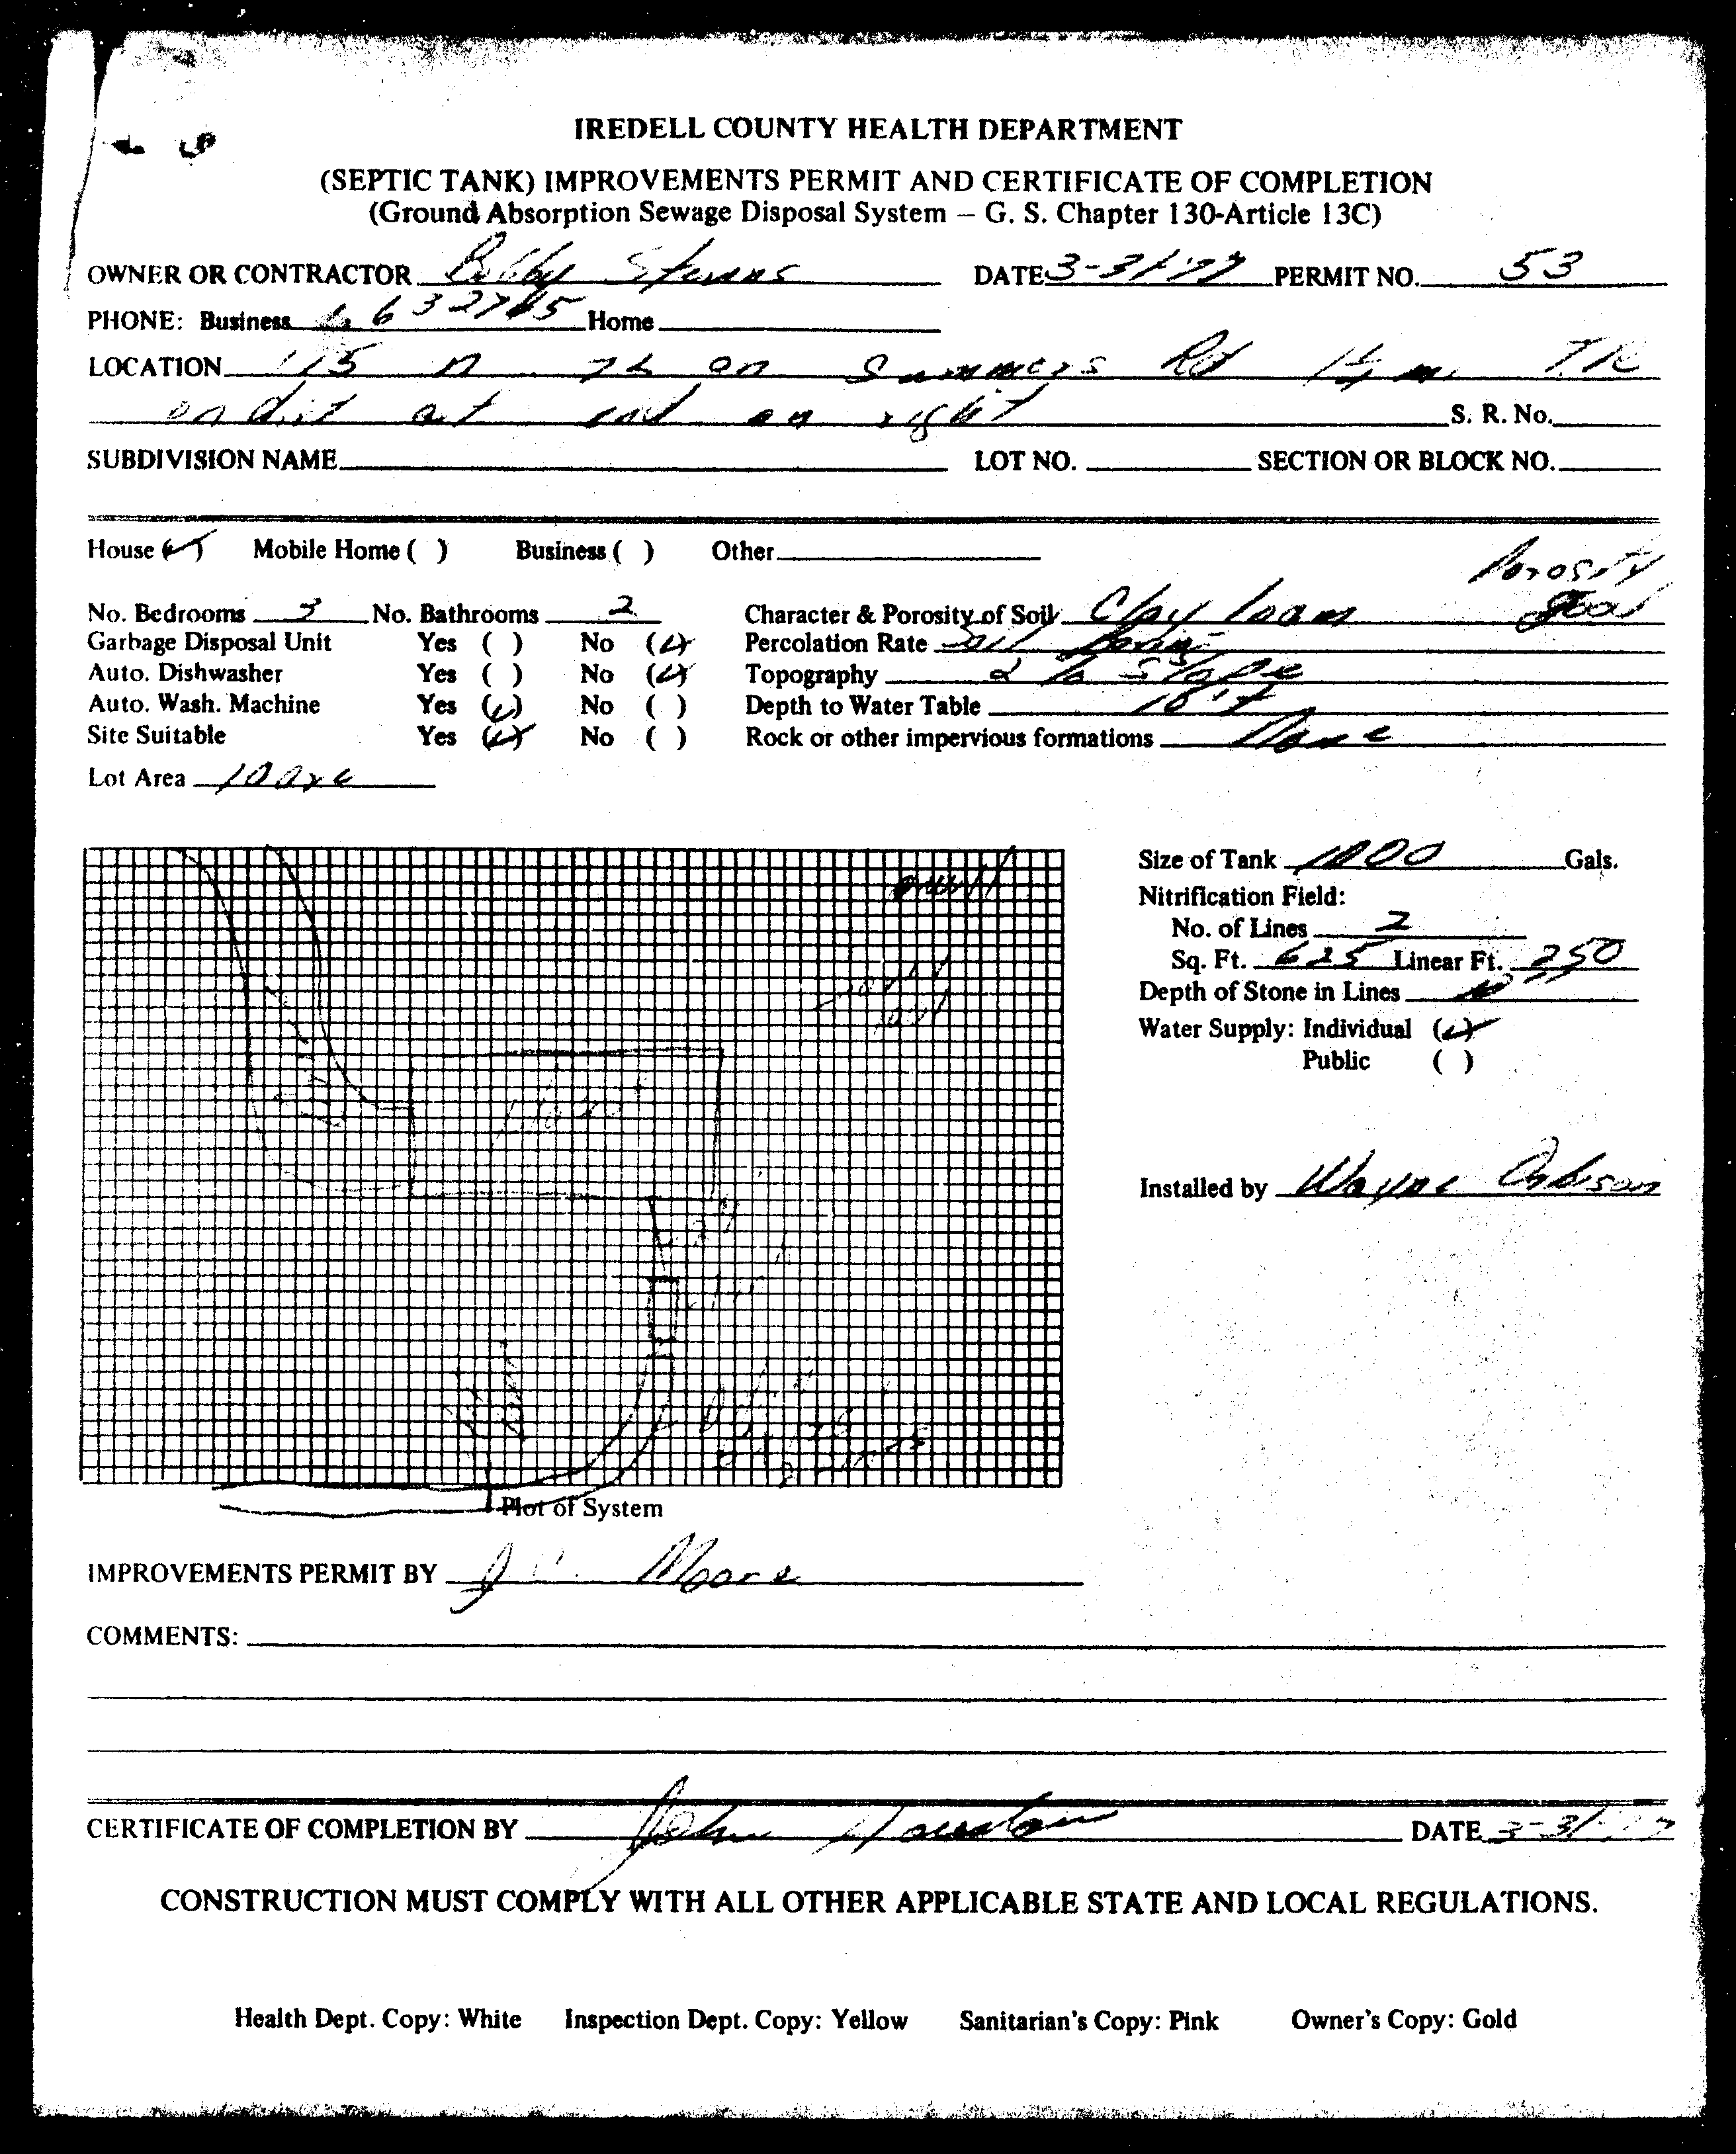 IREDELL COUNTY HEALTH DEPARTMENT
(SEPTIC TANK) IMPROVEMENTS PERMIT AND CERTIFICATE OF COMPLETION
(Ground Absorption Sewage Disposal System – G. S. Chapter 130-Article 13C)
OWNER OR CONTRACTOR Bobby Stevens DATE 3-31-77 PERMIT NO. 53
PHONE: Business Home
LOCATION 115 n TL on Summers Rd 1/4 mi TR
on dirt at end on right S. R. No.
SUBDIVISION NAME LOT NO. SECTION OR BLOCK NO.
House (✓) Mobile Home ( ) Business ( ) Other
Porosity
No. Bedrooms 3 No. Bathrooms 2 Character & Porosity of Soil Clay loam good
Garbage Disposal Unit Yes ( ) No (✓) Percolation Rate Soil Boring
Auto. Dishwasher Yes ( ) No (✓) Topography 2 % Slope
Auto. Wash. Machine Yes (✓) No ( ) Depth to Water Table
Site Suitable Yes (✓) No ( ) Rock or other impervious formations None
Lot Area
Size of Tank 1000 Gals.
Nitrification Field:
No. of Lines 2
Sq. Ft. 625 Linear Ft. 250
Depth of Stone in Lines
Water Supply: Individual (✓)
Public ( )
Installed by Wayne
Plot of System
IMPROVEMENTS PERMIT BY Moore
COMMENTS:
CERTIFICATE OF COMPLETION BY John Houston DATE 3-31-77
CONSTRUCTION MUST COMPLY WITH ALL OTHER APPLICABLE STATE AND LOCAL REGULATIONS.
Health Dept. Copy: White Inspection Dept. Copy: Yellow Sanitarian's Copy: Pink Owner's Copy: Gold